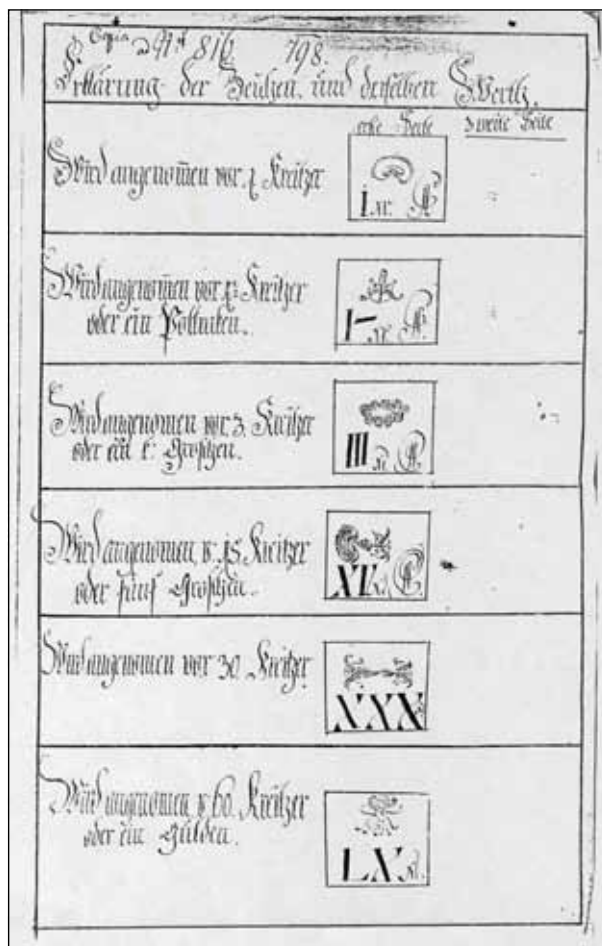 Copia ad No 816. 798.
Erklärung der Zeichen und derselben Werth.
erste Seite zweite Seite
Wird angenom̄en vor 1 Kreitzer
I xr.
Wird angenom̄en vor Kreitzer
oder ein Poltraken.
I–
Wird angenom̄en vor 3. Kreitzer
oder ein Groschen.
III
Wird angenom̄en v: 15. Kreitzer
oder fünf Groschen.
Wird angenomen vor 30. Kreitzer
XXX
Wird angenomen v 60. Kreitzer
oder ein Gulden.
LX